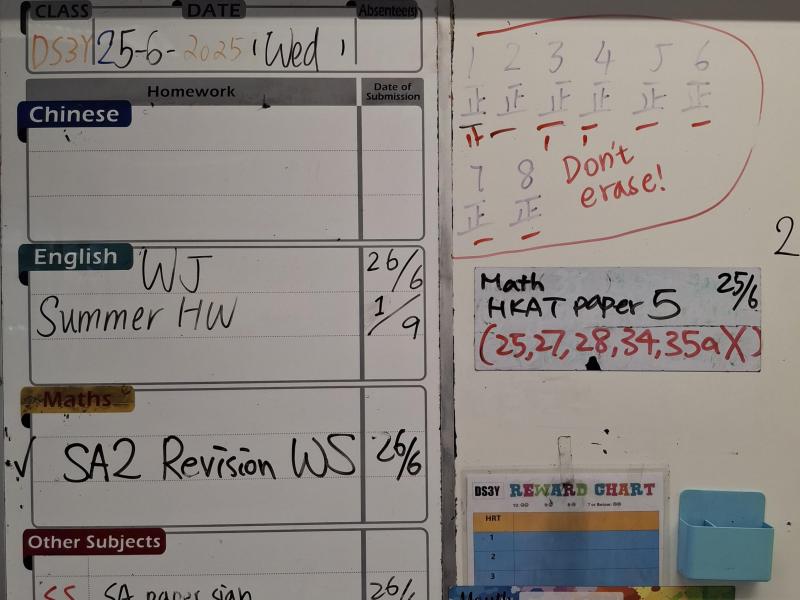 CLASS DATE Absentee(s)
DS3Y 25-6-2025 (Wed)
Homework Date of Submission
Chinese
English
WJ 26/6
Summer HW 1/9
Maths
✓ SA2 Revision WS 26/6
Other Subjects
SS SA paper sign 26/
1 2 3 4 5 6
正 正 正 正 正 正
7 8
正 正
Don't
erase!
2
Math 25/6
HKAT paper 5
(25,27,28,34,35a X)
DS3Y REWARD CHART
HRT
1
2
3